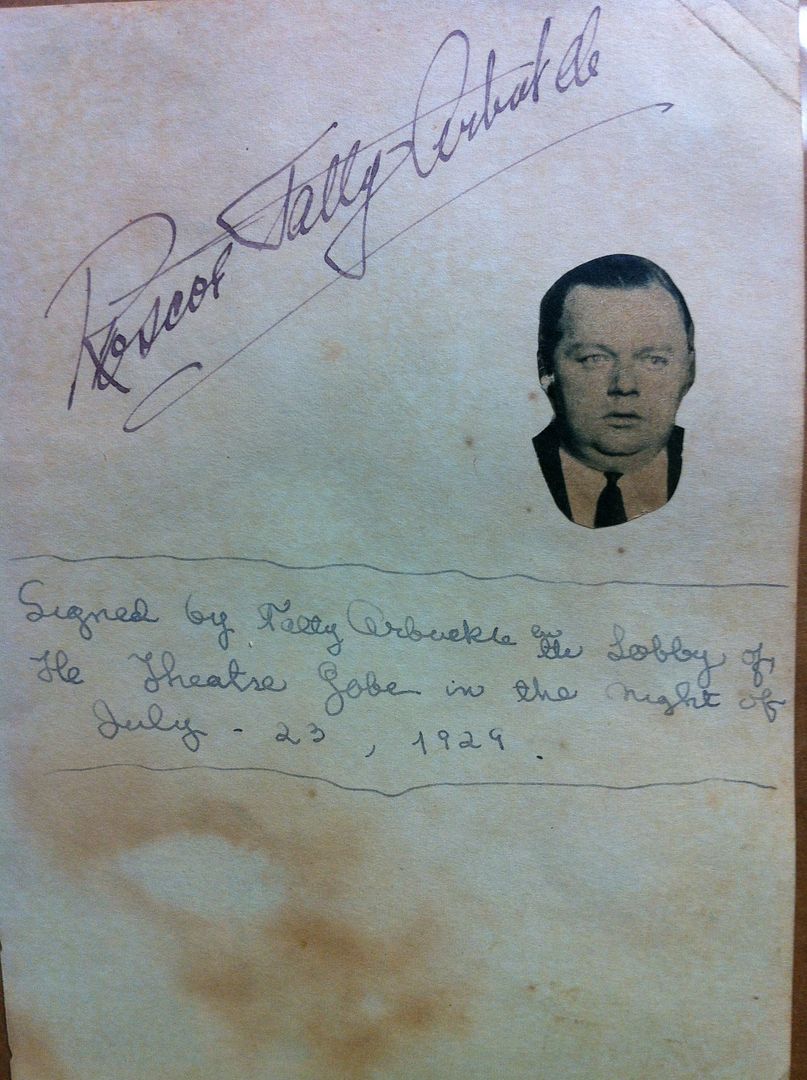 Roscoe Fatty Arbutcle
Signed by Fatty Arbuckle in the Lobby of
He Theatre Gobe in the night of
July - 23, 1929.